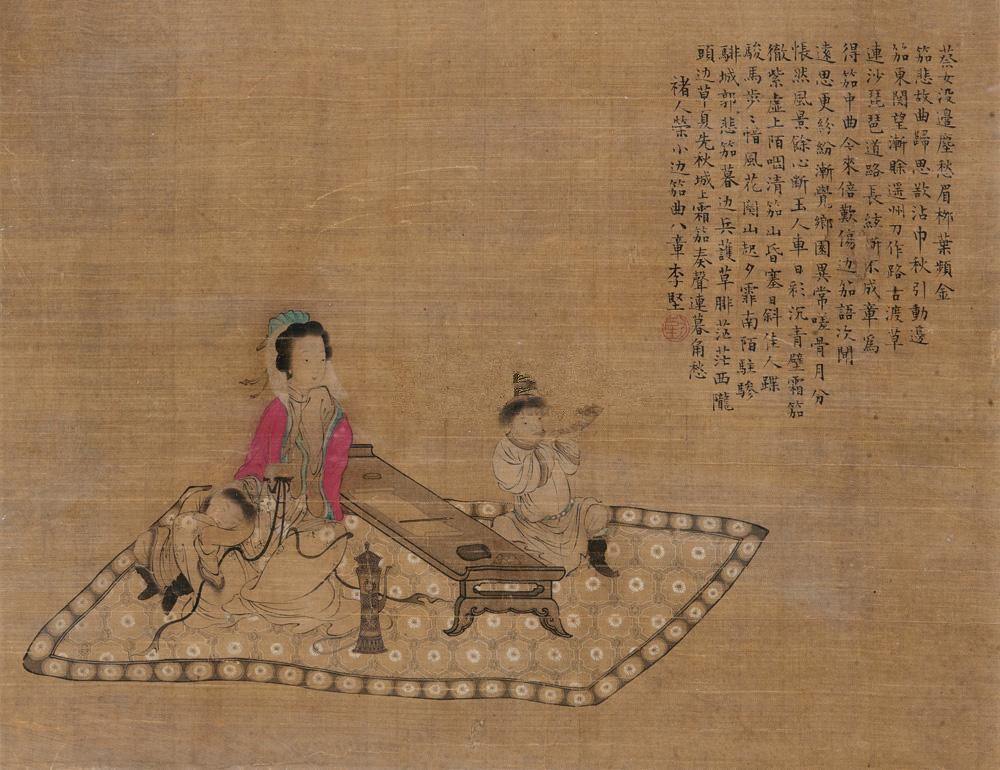 蔡女没邊塵愁眉柳葉頻金
笳悲故曲歸思欲沾巾秋引動邊
笳東関望漸賒遥州刀作路古渡草
連沙琵琶道路長絃断不成章為
得笳中曲令來倍歎傷边笳語次聞
遠思更紛紛漸覺鄉園異常嗟骨月分
悵然風景餘心斷玉人車日彩沉青壁霜笳
徹紫虚上陌咽清笳山昏塞日斜佳人蹀
駿馬步〻惜風花関山起夕霏南陌駐驂
騑城郭悲笳暮边兵護草腓茫茫西隴
頭边草夏先秋城上霜笳奏聲連暮角愁
褚人榮小边笳曲八章李堅